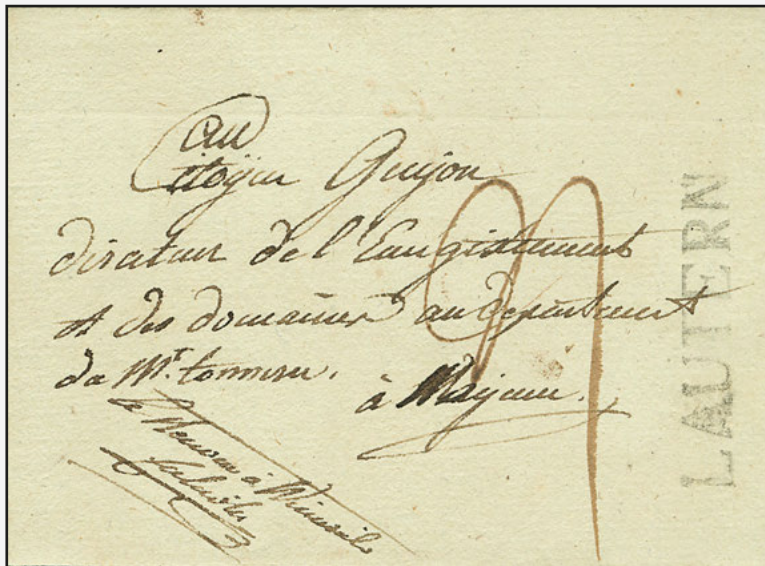 au
citoyen Guijon
directeur de l'Enregistrement
et des domaines au departement
de Mt. tonnerre.
à Mayence.
le
à
LAUTERN